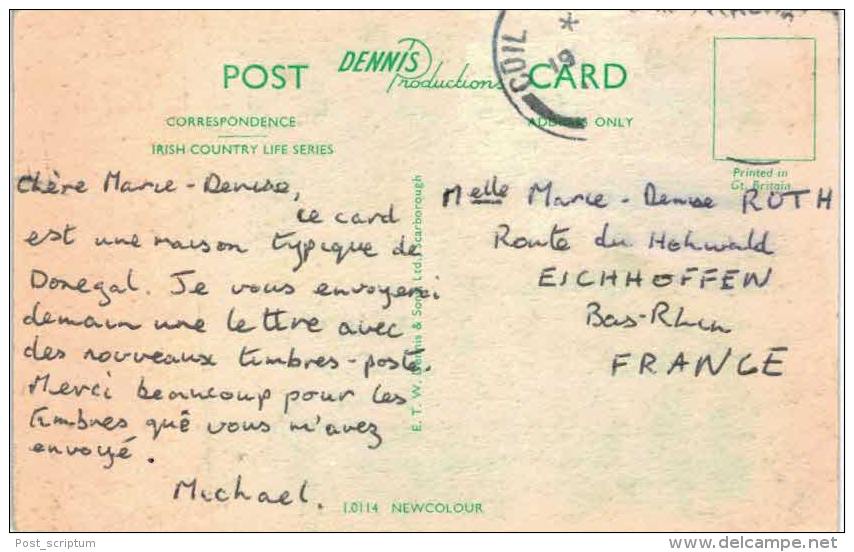 POST DENNIS Productions CARD
CORRESPONDENCE
ADDRESS ONLY
IRISH COUNTRY LIFE SERIES
COIL
19
Printed in
Gt. Britain
Chère Marie-Denise,
ce card
est une maison typique de
Donegal. Je vous envoyerai
demain une lettre avec
des nouveaux timbres-poste.
Merci beaucoup pour les
timbres quê vous m'avez
envoyé.
Michael.
E. T. W. Dennis & Sons Ltd., Scarborough
Melle Marie-Denise RUTH
Route du Hohwald
EICHHOFFEN
Bas-Rhin
FRANCE
I.0114 NEWCOLOUR
Post_scriptum
www.delcampe.net